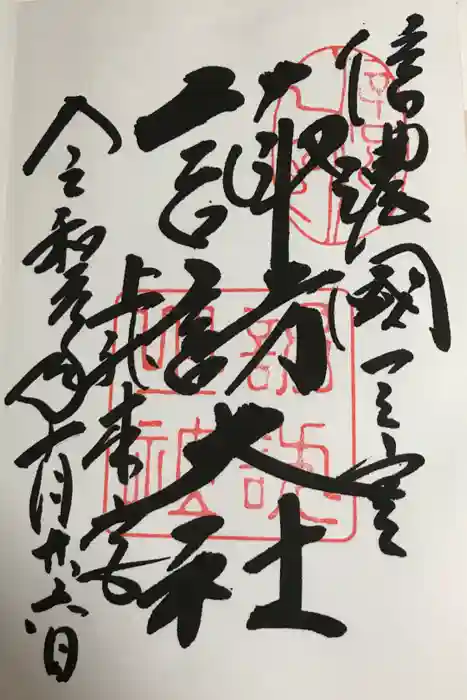 信濃國一之宮
諏訪大社
上社本宮
令和元年十月廿六日
諏訪大社